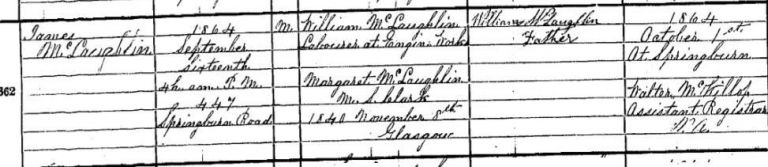 James
McLaughlin
362
1864
September
Sixteenth
4h. am. P.M.
447,
Springburn Road
M.
William McLaughlin
Labourer at Engin. Work
Margaret McLaughlin
M.S. Clark
1840 November 8th
Glasgow
William McLaughlin
Father
1864
October 1st
At Springburn
Walter McKillop
Assistant Registrar